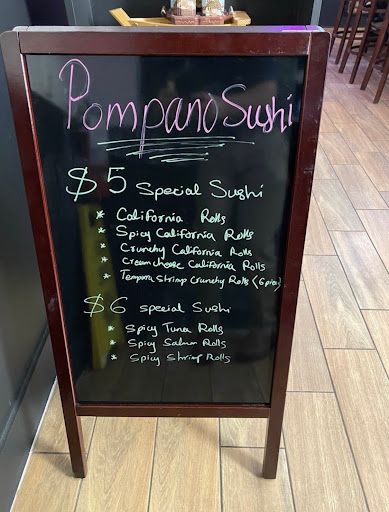 Pompano Sushi
$5 Special Sushi
* California Rolls
* Spicy California Rolls
* Crunchy California Rolls
* Cream cheese California Rolls
* Tempora Shrimp Crunchy Rolls (6 pies)
$6 special Sushi
* Spicy Tuna Rolls
* Spicy Salmon Rolls
* Spicy Shrimp Rolls